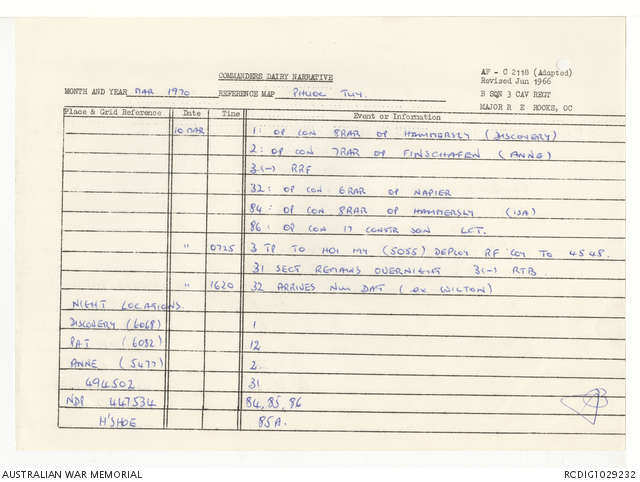 COMMANDERS DAIRY NARRATIVE
AF - C 2118 (Adapted)
Revised Jun 1966
MONTH AND YEAR MAR 1970 REFERENCE MAP PHUOC TUY.
B SQN 3 CAV REGT
MAJOR R E ROOKS, OC
Place & Grid Reference Date Time Event or Information
10 MAR 1: OP CON 8RAR OP HAMMERSLY (DISCOVERY)
2: OP CON 7RAR OP FINSCHAFEN (ANNE)
3(-) RRF
32: OP CON 6RAR OP NAPIER
84: OP CON 8RAR OP HAMMERSLY (ISA)
86: OP CON 17 CONSTR SQN LCT.
" 0725 3 TP TO HOI MY (5055) DEPLOY RF COY TO 4548.
31 SECT REMAINS OVERNIGHT 3(-) RTB
" 1620 32 ARRIVES NUI DAT (ex WILTON)
NIGHT LOCATIONS.
DISCOVERY (6068) 1
PAT (6082) 12
ANNE (5477) 2.
494502 31
NDP 447534 84, 85, 86
H'SHOE 85A.
AUSTRALIAN WAR MEMORIAL
RCDIG1029232